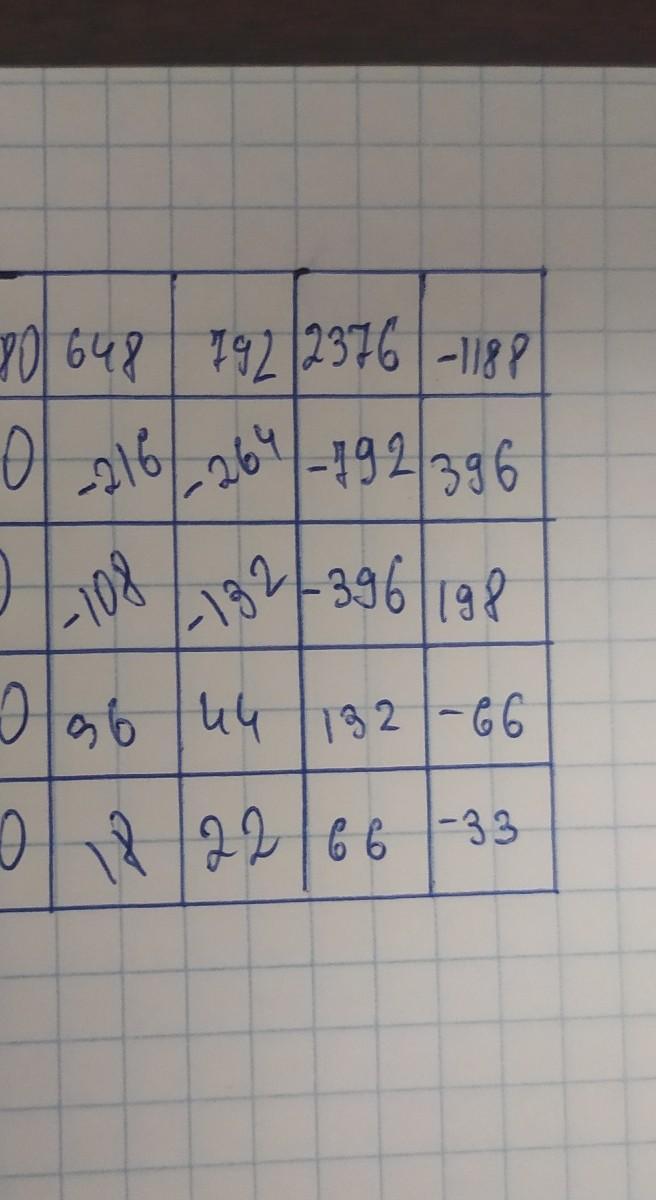 80 648 792 2376 -1188
0 -216 -264 -792 396
-108 -132 -396 198
0 36 44 132 -66
0 18 22 66 -33